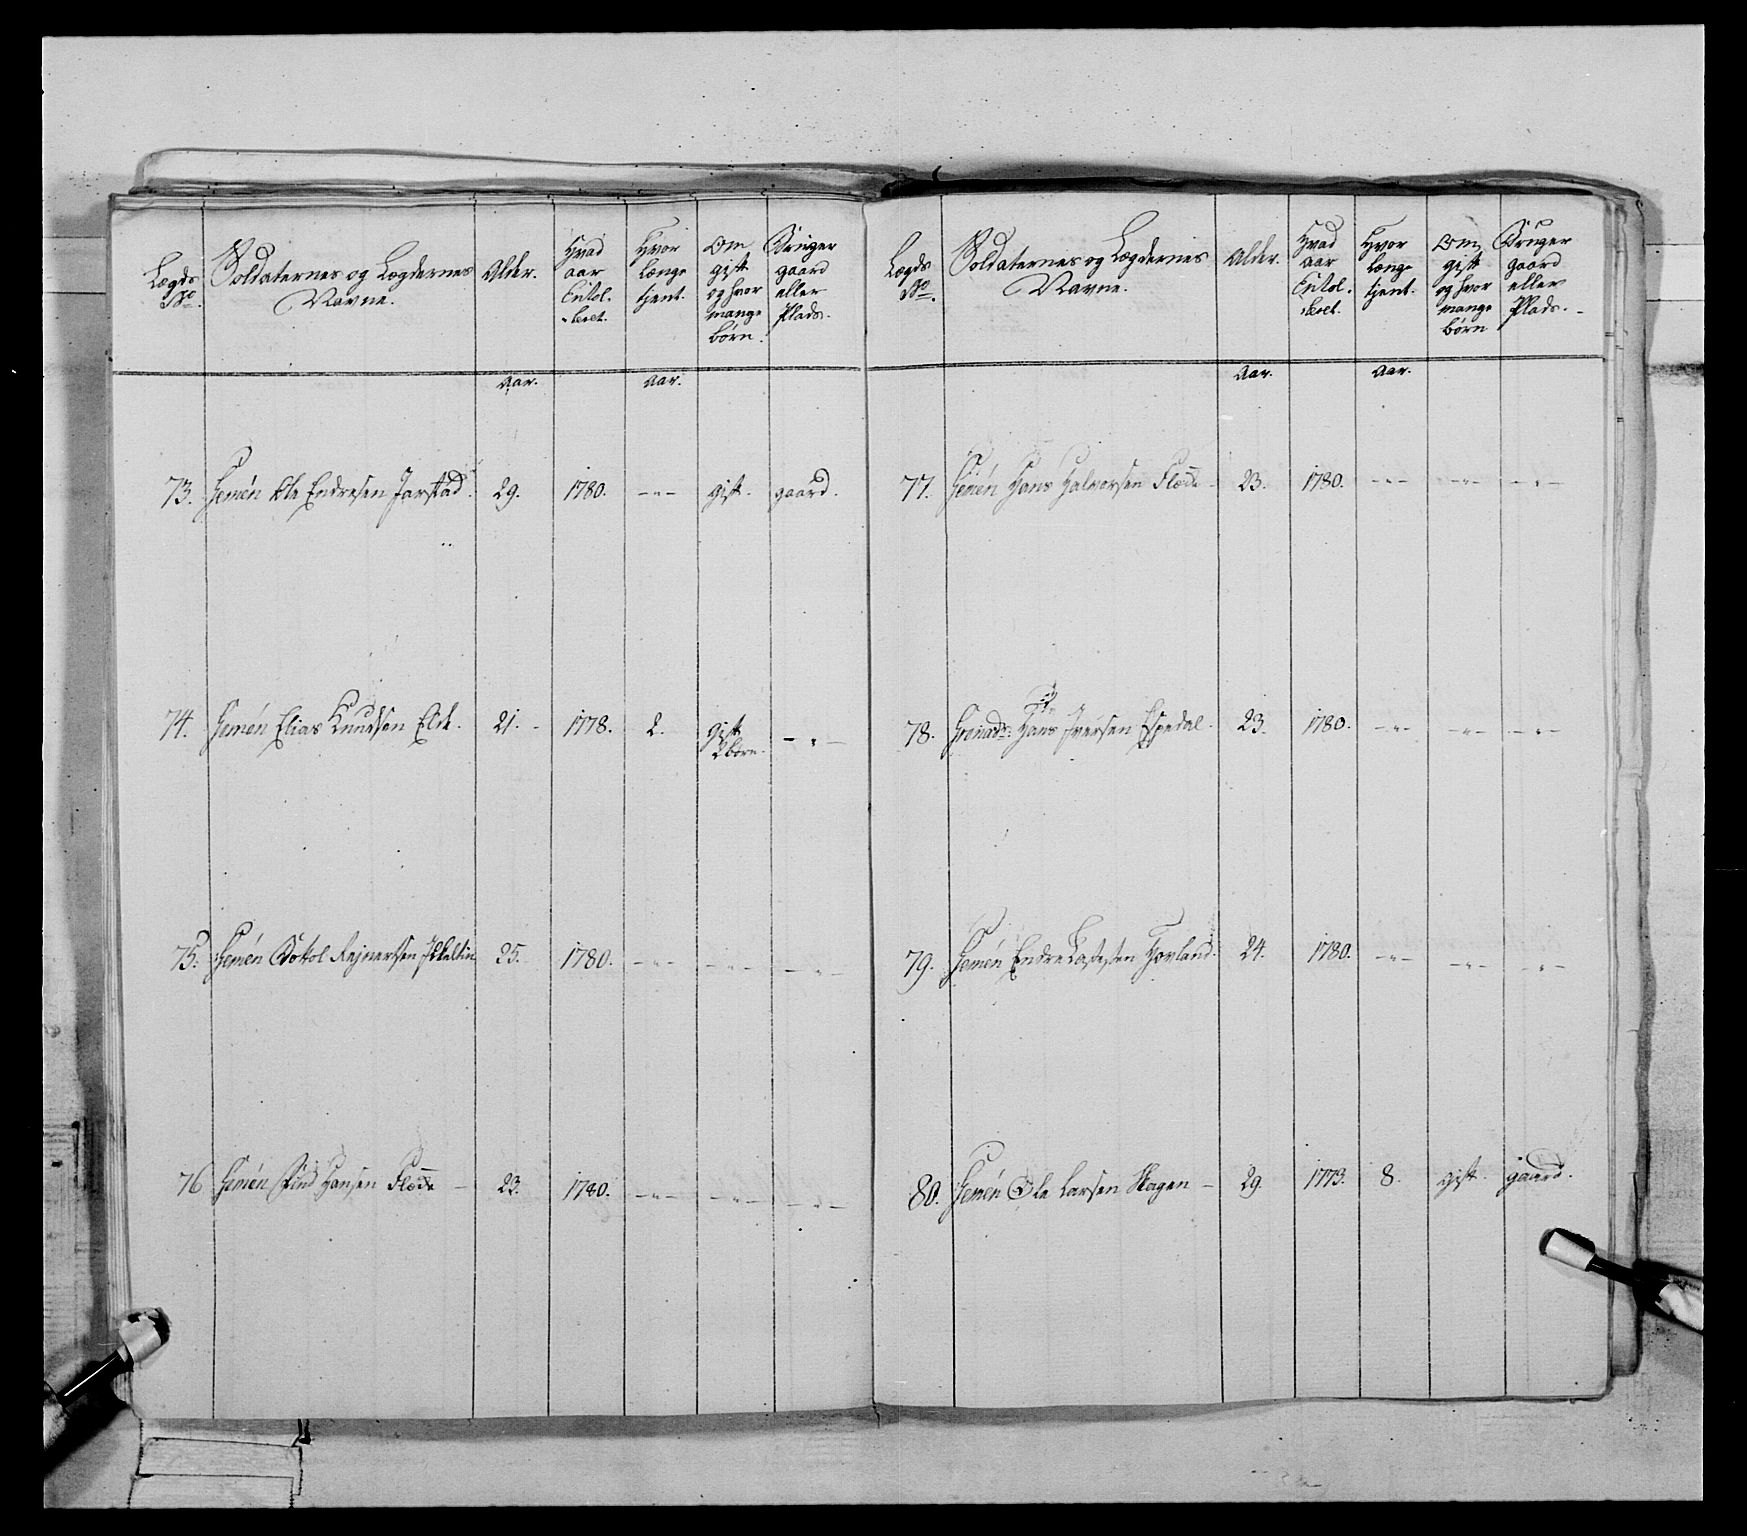 Lægds No.
Soldaternes og Lægdernes Navne.
Alder.
Hvad aar Enrol-leret.
Hvor længe tjent.
Om gift og hvor mange børn.
Bruger gaard eller Plads.
Aar. Aar.
73. Gemēn Ole Endresen Jarstad. 29. 1780. -"- gift. gaard.
74. Gemēn Elias Knudsen Elde. 21. - 1778. 2. gift 2 børn. -"-
75. Gemēn Rejnertsen 25. 1780. -"- -"- -"-
76 Gemēn Find Hansen Fløde - 23. 1780. -"- -"- -"-
Lægds No.
Soldaternes og Lægdernes Navne.
Alder.
Hvad aar Enrol-leret.
Hvor længe tjent.
Om gift og hvor mange børn
Bruger gaard eller Plads. -
Aar. Aar.
77. Gemēn Hans Halvorsen Fløde - 23. 1780. -"- -"- -"-
78. Grenadr: Hans Iversen Espedal. 23. 1780. -"- -"- -"-
79. Gemēn Endre Hovland. 24. 1780. -"- -"- -"-
80. Gemēn Ole Larsen Hagen - 29. 1773. 8. gift. gaard.